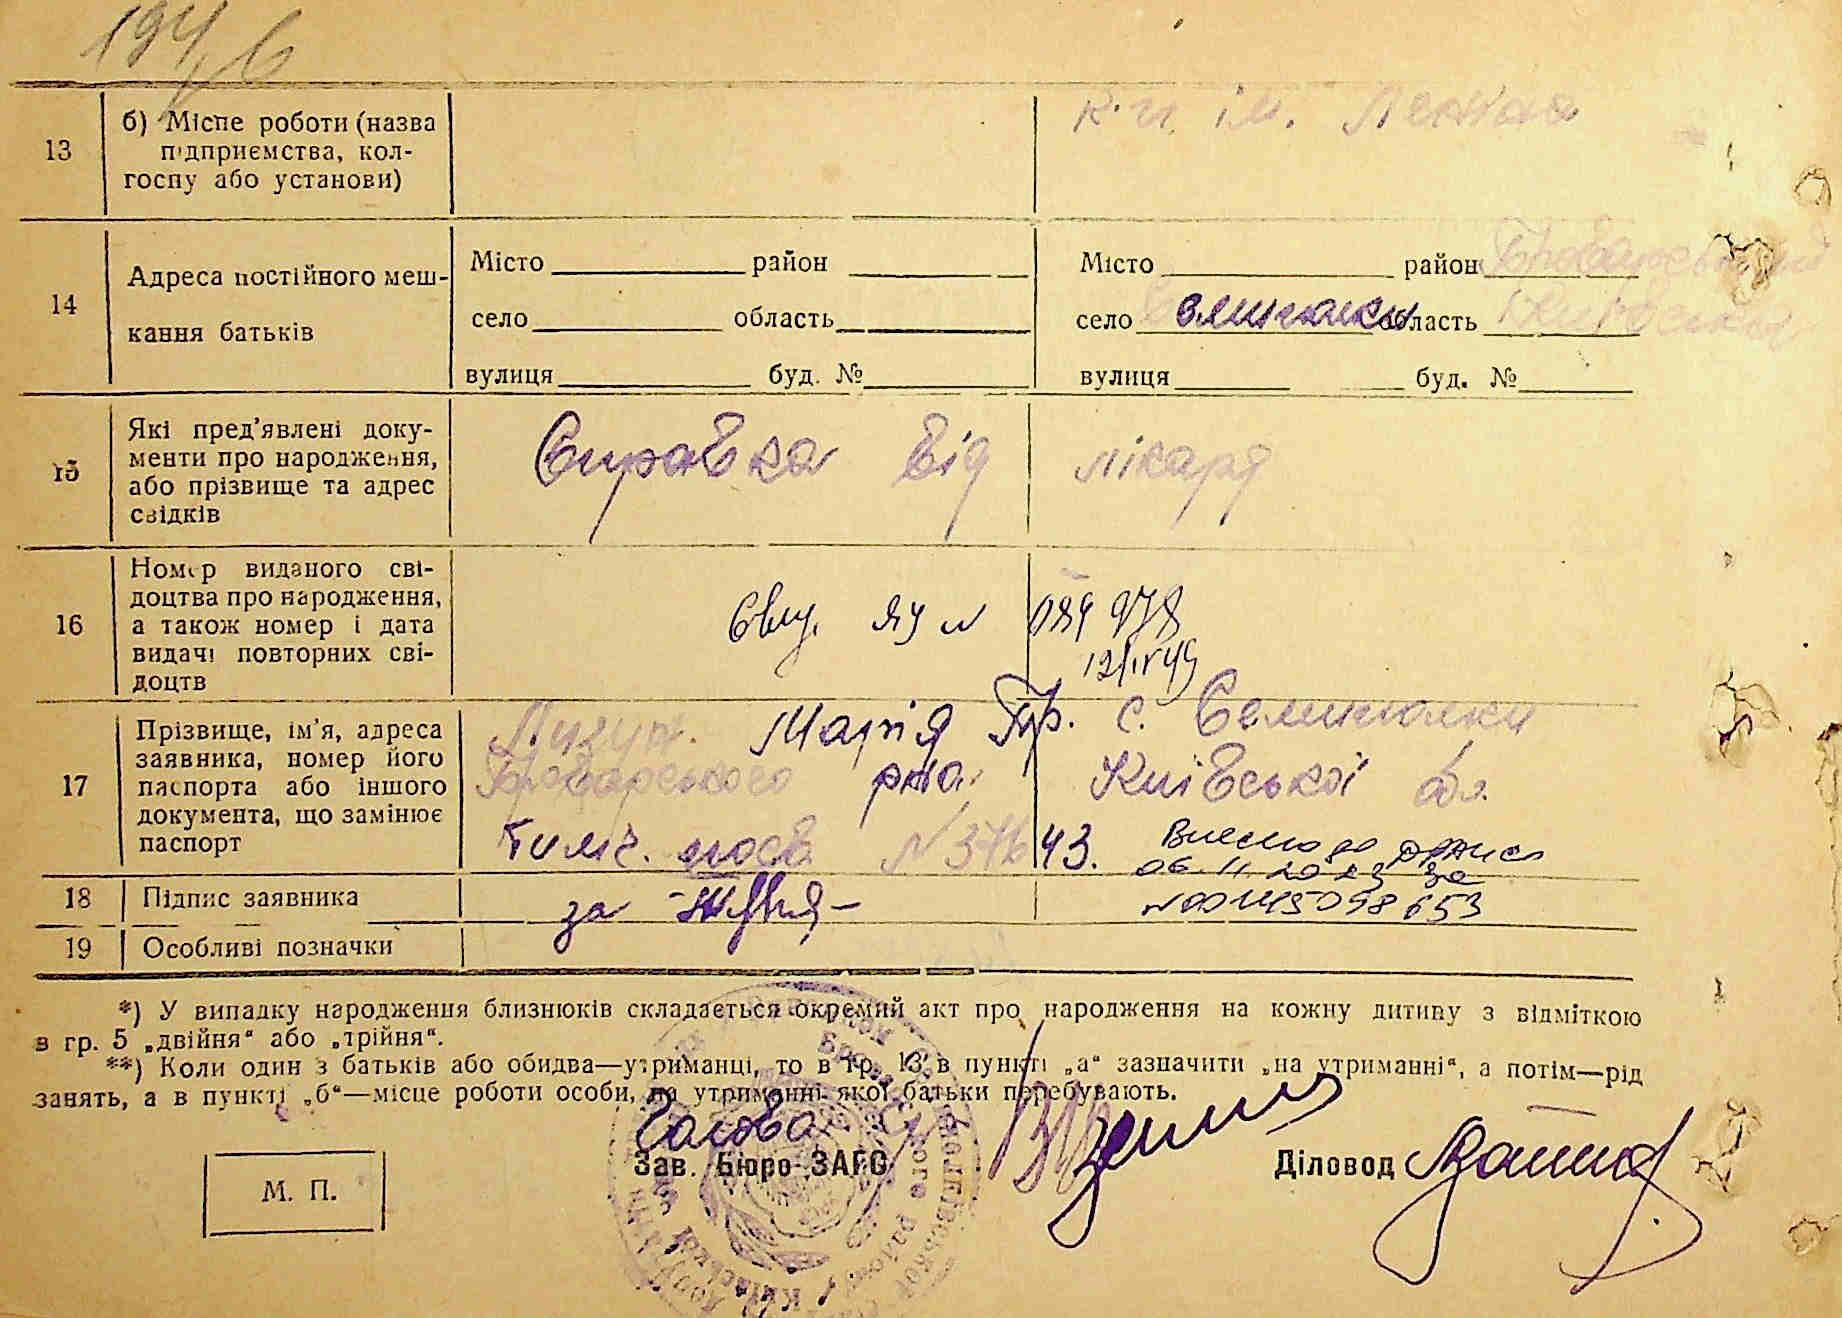 194
13
б) Місце роботи (назва
підприємства, кол-
госпу або установи)
к-п ім. Леніна
14
Адреса постійного меш-
кання батьків
Місто район
село область
вулиця буд. №
Місто район Броварський
село Семиполки область Київська
вулиця буд. №
15
Які пред'явлені доку-
менти про народження,
або прізвище та адрес
свідків
Справка від лікаря
16
Номер виданого сві-
доцтва про народження,
а також номер і дата
видачі повторних сві-
доцтв
ЯУ № 084978
12/IV 49
17
Прізвище, ім'я, адреса
заявника, номер його
паспорта або іншого
документа, що замінює
паспорт
Марія Гр. с. Семиполки
Броварського р-на Київської обл.
Тимч. посв. № 43.
Внесено до ДРАЦС
06.11.2023 за
№00145098653
18
Підпис заявника
за
19
Особливі позначки
*) У випадку народження близнюків складається окремий акт про народження на кожну дитину з відміткою
в гр. 5 „двійня“ або „трійня“.
**) Коли один з батьків або обидва—утриманці, то в гр. 13 в пункті „а“ зазначити „на утриманні“, а потім—рід
занять, а в пункті „б“—місце роботи особи, на утриманні якої батьки перебувають.
М. П.
Голова с/р
Зав. Бюро ЗАГС
Діловод